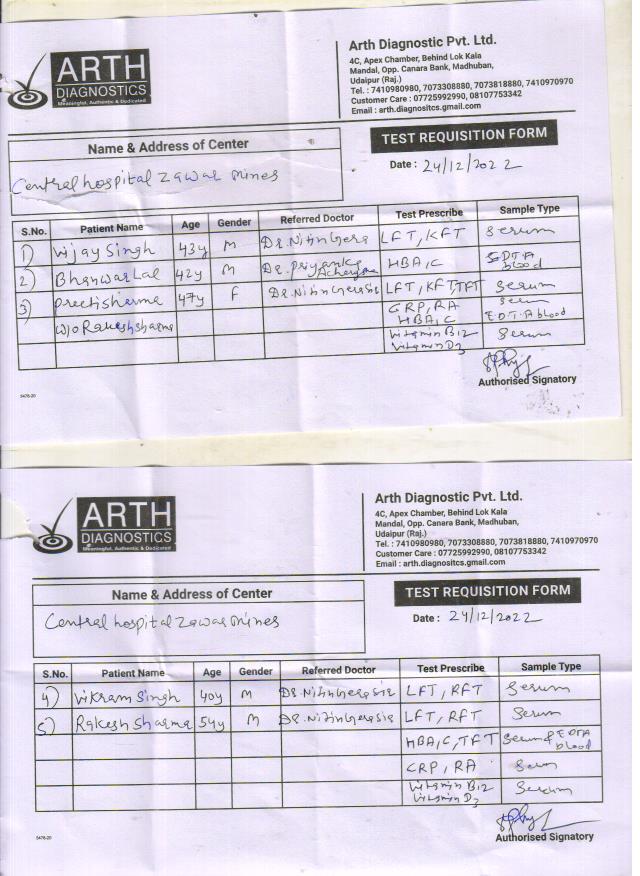 ARTH
DIAGNOSTICS
Meaningful, Authentic & Dedicated
Arth Diagnostic Pvt. Ltd.
4C, Apex Chamber, Behind Lok Kala
Mandal, Opp. Canara Bank, Madhuban,
Udaipur (Raj.)
Tel. : 7410980980, 7073308880, 7073818880, 7410970970
Customer Care : 07725992990, 08107753342
Email : arth.diagnositcs.gmail.com
TEST REQUISITION FORM
Name & Address of Center
Central hospital Zawar mines
Date : 24/12/2022
S.No. Patient Name Age Gender Referred Doctor Test Prescribe Sample Type
1) Vijay Singh 43y M Dr. Nitin LFT, KFT Serum
2) Bhanwar Lal 42y M Dr. Priyanka HBA1C EDTA blood
3) Preeti Sharma 47y F Dr. Nitin LFT, KFT, TFT Serum
W/o Rakesh Sharma CRP, RA HBA1C Serum E.D.T.A blood
Vitamin B12 Vitamin D3 Serum
Authorised Signatory
5478-20
ARTH
DIAGNOSTICS
Meaningful, Authentic & Dedicated
Arth Diagnostic Pvt. Ltd.
4C, Apex Chamber, Behind Lok Kala
Mandal, Opp. Canara Bank, Madhuban,
Udaipur (Raj.)
Tel. : 7410980980, 7073308880, 7073818880, 7410970970
Customer Care : 07725992990, 08107753342
Email : arth.diagnositcs.gmail.com
TEST REQUISITION FORM
Name & Address of Center
Central hospital Zawar mines
Date : 24/12/2022
S.No. Patient Name Age Gender Referred Doctor Test Prescribe Sample Type
4) Vikram Singh 40y M Dr. Nitin LFT, RFT Serum
5) Rakesh Sharma 54y M Dr. Nitin LFT, RFT Serum
HBA1C, TFT Serum & EDTA blood
CRP, RA Serum
Vitamin B12 Vitamin D3 Serum
Authorised Signatory
5478-20